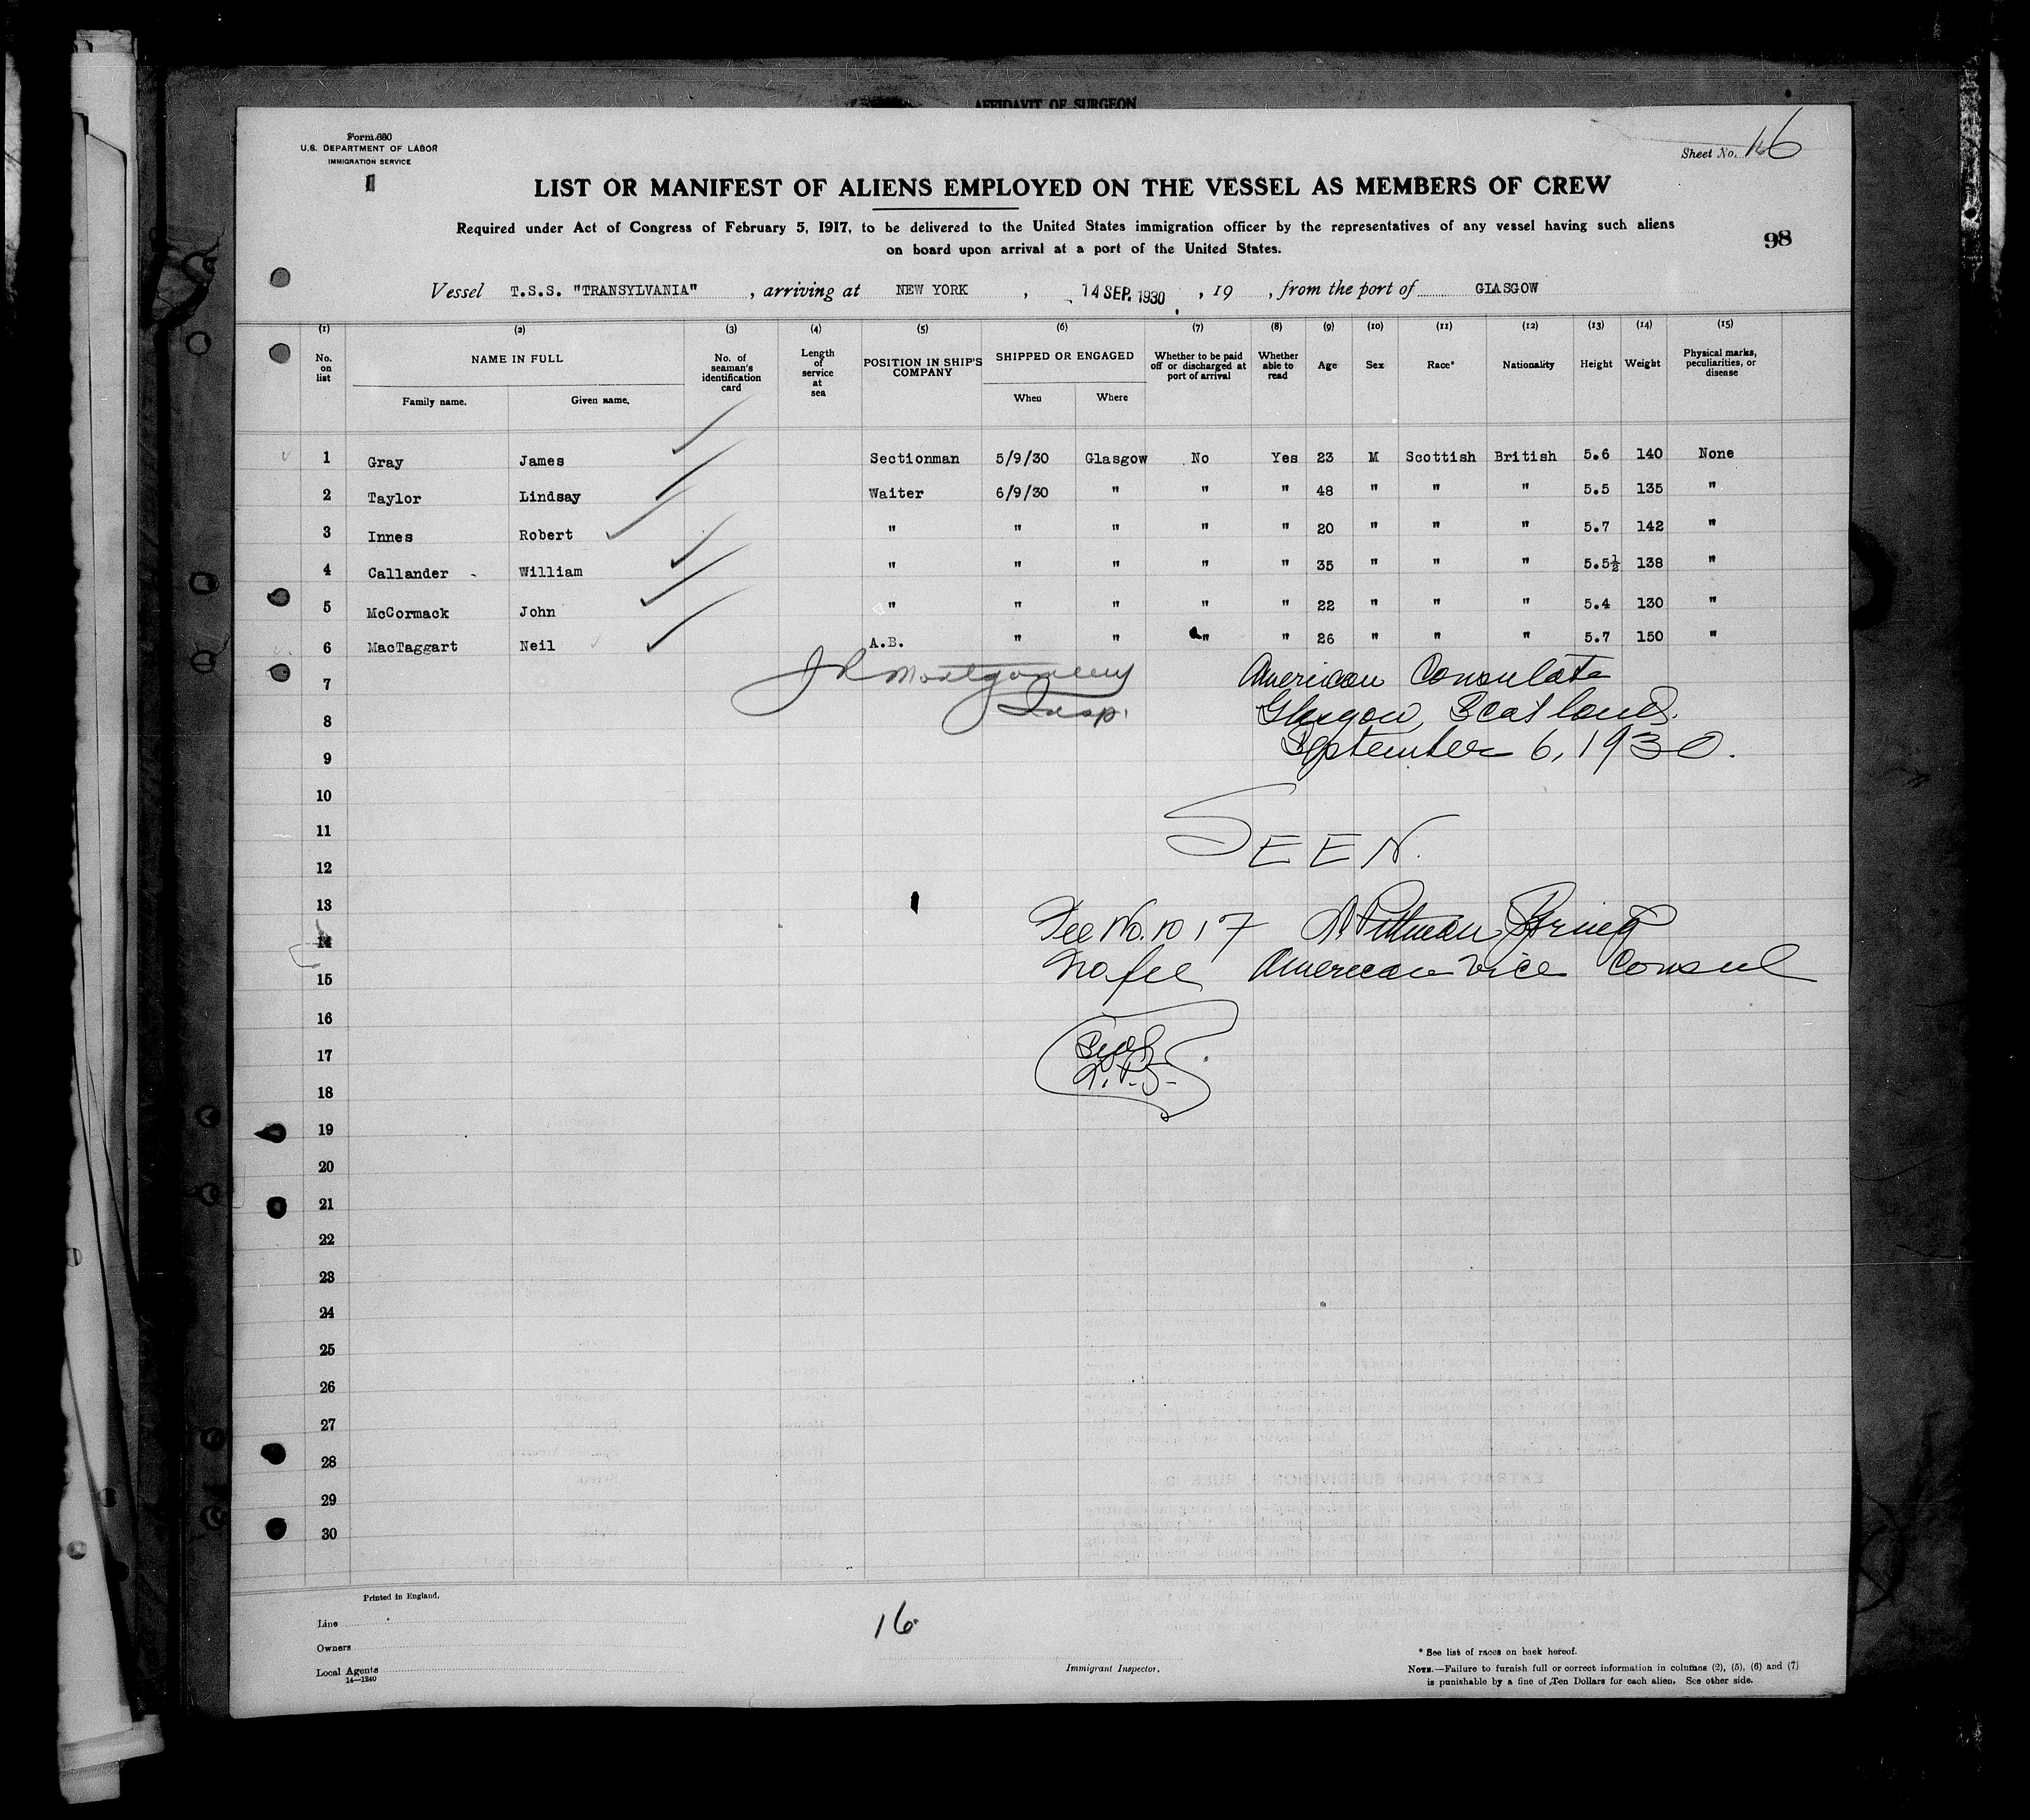 AFFIDAVIT OF SURGEON
Form 680
U.S. DEPARTMENT OF LABOR
IMMIGRATION SERVICE
Sheet No. 16
LIST OR MANIFEST OF ALIENS EMPLOYED ON THE VESSEL AS MEMBERS OF CREW
Required under Act of Congress of February 5, 1917, to be delivered to the United States immigration officer by the representatives of any vessel having such aliens
on board upon arrival at a port of the United States.
98
Vessel T.S.S. "TRANSYLVANIA", arriving at NEW YORK, 14 SEP. 1930, 19 , from the port of GLASGOW
(1) (2) (3) (4) (5) (6) (7) (8) (9) (10) (11) (12) (13) (14) (15)
No. on list NAME IN FULL Family name. Given name. No. of seaman's identification card Length of service at sea POSITION IN SHIP'S COMPANY SHIPPED OR ENGAGED When Where Whether to be paid off or discharged at port of arrival Whether able to read Age Sex Race* Nationality Height Weight Physical marks, peculiarities, or disease
1 Gray James Sectionman 5/9/30 Glasgow No Yes 23 M Scottish British 5.6 140 None
2 Taylor Lindsay Waiter 6/9/30 " " " 48 " " " 5.5 135 "
3 Innes Robert " " " " " 20 " " " 5.7 142 "
4 Callander William " " " " " 35 " " " 5.5½ 138 "
5 McCormack John " " " " " 22 " " " 5.4 130 "
6 MacTaggart Neil A.B. " " " " 26 " " " 5.7 150 "
J R Montgomery
Insp.
American Consulate
Glasgow, Scotland.
September 6, 1930.
SEEN.
Fee No. 1017
American Vice Consul
No fee
Seal
7
8
9
10
11
12
13
14
15
16
17
18
19
20
21
22
23
24
25
26
27
28
29
30
Printed in England.
Line
Owners
Local Agents
14—1240
16
Immigrant Inspector.
* See list of races on back hereof.
NOTE.—Failure to furnish full or correct information in columns (2), (5), (6) and (7)
is punishable by a fine of Ten Dollars for each alien. See other side.